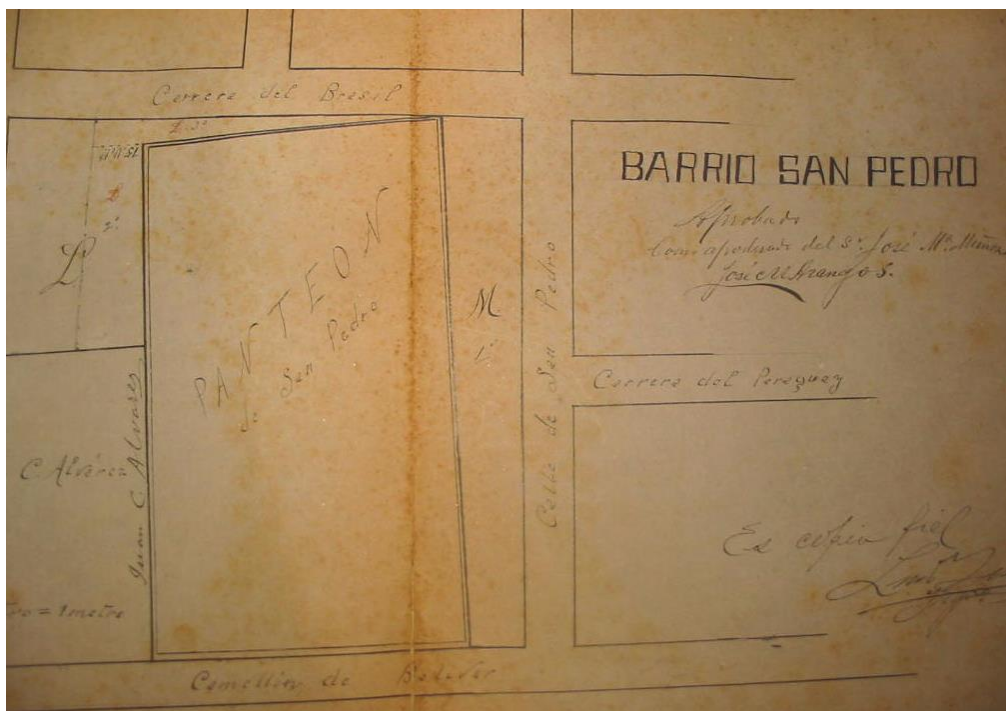 Carrera del Brasil
BARRIO SAN PEDRO
Aprobado
Como apoderado del Sr. José Ma. Muñoz
José M Arango S.
L
2º
PANTEON
de San Pedro
M
1º
Calle de San Pedro
Carrera del Paraguay
C. Alvarez
Juan C Alvarez
Es copia fiel
tro = 1 metro
Camellón de Bolívar